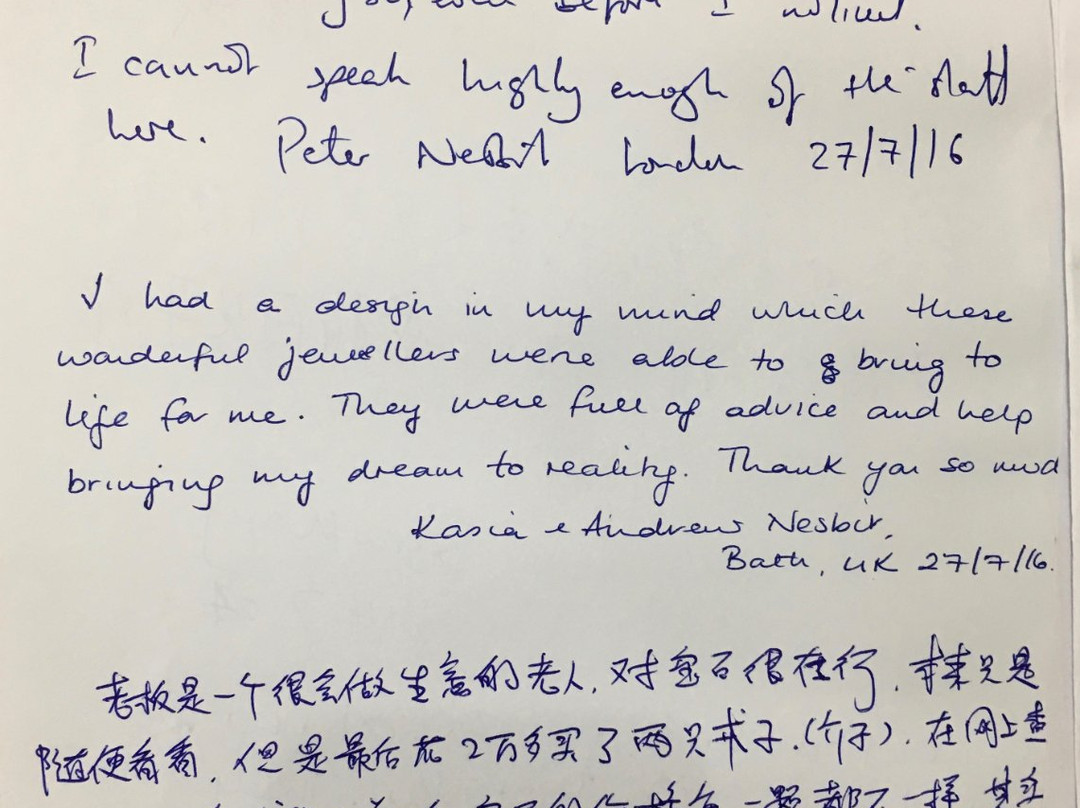 before I noticed.
I cannot speak highly enough of the staff
here. Peter Nesbit London 27/7/16
I had a design in my mind which these
wonderful jewellers were able to bring to
life for me. They were full of advice and help
bringing my dream to reality. Thank you so much
Kasia & Andrew Nesbit,
Bath, UK 27/7/16.
老板是一个很会做生意的老人,对宝石很在行,本来只是
随便看看,但是最后花2万多买了两只戒子.(介子).在网上查
一颗都不一样,其实